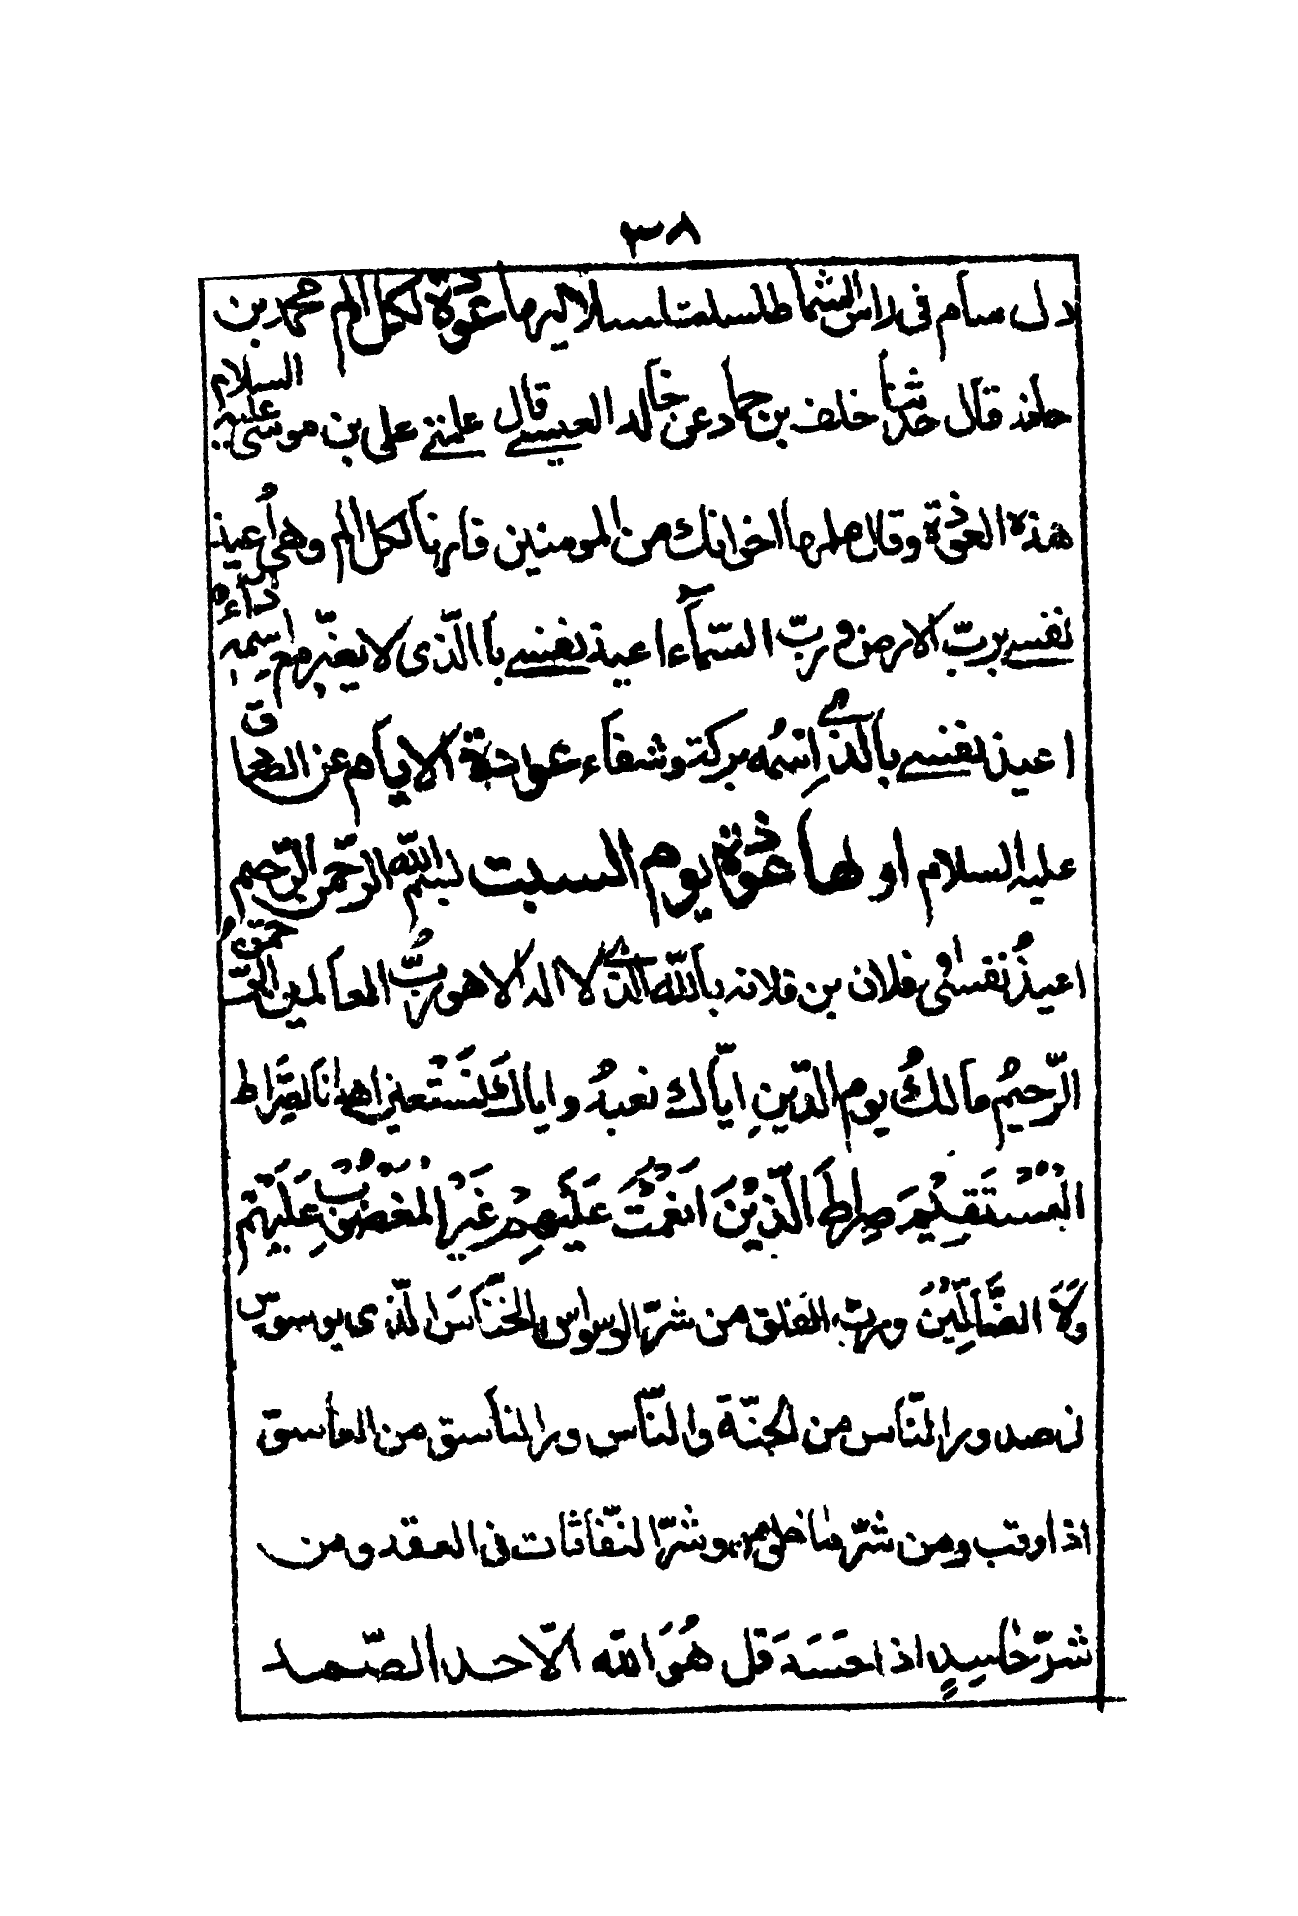 ٣٨
دل سام فى راس الشما طلسلمتا سلا اليرها عوذة لكل الم محمد بن
حامد قال حدثنا خلف بن حماد عن خالد العبسے قال علمنے على بن موسى عليه السلام
هذه العوذة وقال علمها اخوانك من المومنين فانها لكل الم وهى أعيذ
نفسے برب الارض و رب السّمآء اعيذ نفسے با الّذى لا يضّر مع اسمه داء
اعيذ نفسے بالذے اسمُه بركة وشفاء عوذة الايام عن الرضا
عليه السلام اولها عوذة يوم السبت بسم الله الرّحمن الرّحيم
اعيذُ نفسى او فلان بن فلانه باللّه الذے لا اله الا هو ربُّ العالمين الرحمنُ
الرّحيمُ مالك يوم الدّينِ ايّاك نعبدُ و اياك نستعين اهدنا الصّراط
المُستَقِيمَ صِراطَ الّذينَ انعَمْتَ عَلَيهِمْ غَيْرِ المَغضُوبِ عَلَيهِمْ
وَلاَ الضَّآلّينَ وربّ الفلق من شرّ الوسواس الخنّاس الّذى يوسوس
فى صدور النّاس من الجنّة والنّاس و من الغاسق
اذا وقب ومن شرّ ما خلق ومن وشرّ النّفاثات فى العقد ومن
شرّ حاسدٍ اذا حَسَدَ قل هُوَ اللّه الاحد الصّمد